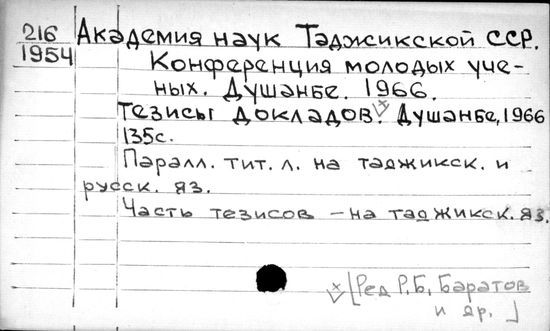 216
1954
Академия наук Таджикской ССР.
Конференция молодых уче-
ных. Душанбе. 1966.
Тезисы докладов. Душанбе, 1966
135с.
Паралл. тит. л. на таджикск. и
русск. яз.
Часть тезисов – на таджикск. яз.
[Ред Р.Б. Баратов
и др.]